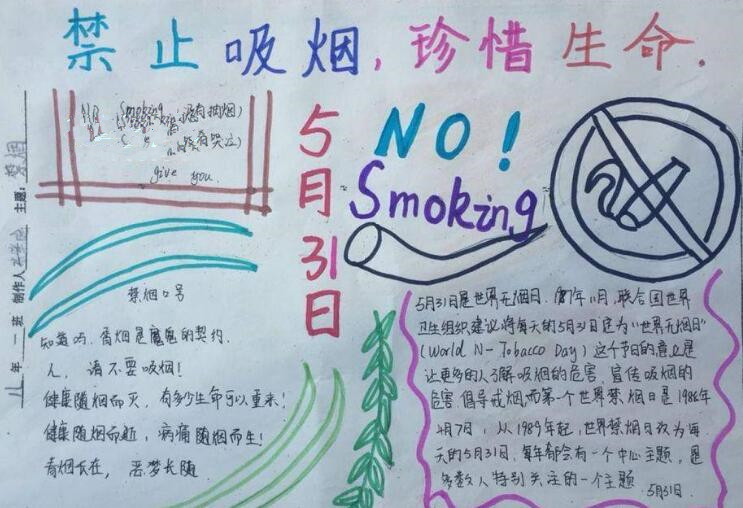 禁止吸烟,珍惜生命.
主题:禁烟
制作人
八年一班
Smoking (没有抽烟)
give you.
5月31日
NO!
Smoking
禁烟口号
知道吗,香烟是魔鬼的契约.
人,请不要吸烟!
健康随烟而灭,有多少生命可以重来!
健康随烟而逝,病痛随烟而生!
香烟长在,恶梦长随
5月31日是世界无烟日.1987年11月,联合国世界
卫生组织建议将每天的5月31日定为"世界无烟日"
(World N- Tobacco Day)这个节日的意义是
让更多的人了解吸烟的危害,宣传吸烟的
危害.倡导戒烟.而第一个世界禁烟日是1988年
4月7日,从1989年起,世界禁烟日改为每
天的5月31日.每年都会有一个中心主题,是
多数人特别关注的一个主题.
5月31日